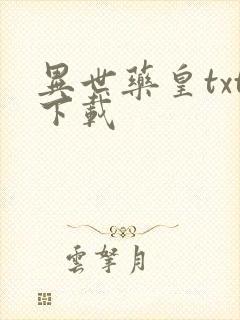 異世藥皇txt
下載
雲拏月